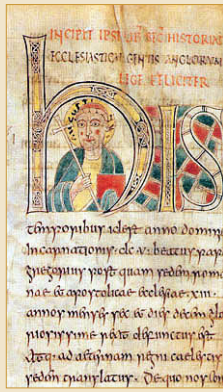 INCIPIT IPSI HISTORIAE
ECCLESIASTICAE GENTIS ANGLORUM
LEGE FELICITER
hIS
temporibus idest anno domini
Incarnationis dc v beatus papa
gregorius post quam sedem roma
nae et apostolicae ecclesiae xiii
annos menses sex et dies decem glo
riosissime rexit defunctus est
Atq: ad aeternam regni caelestis
sedem translatus De quo nos